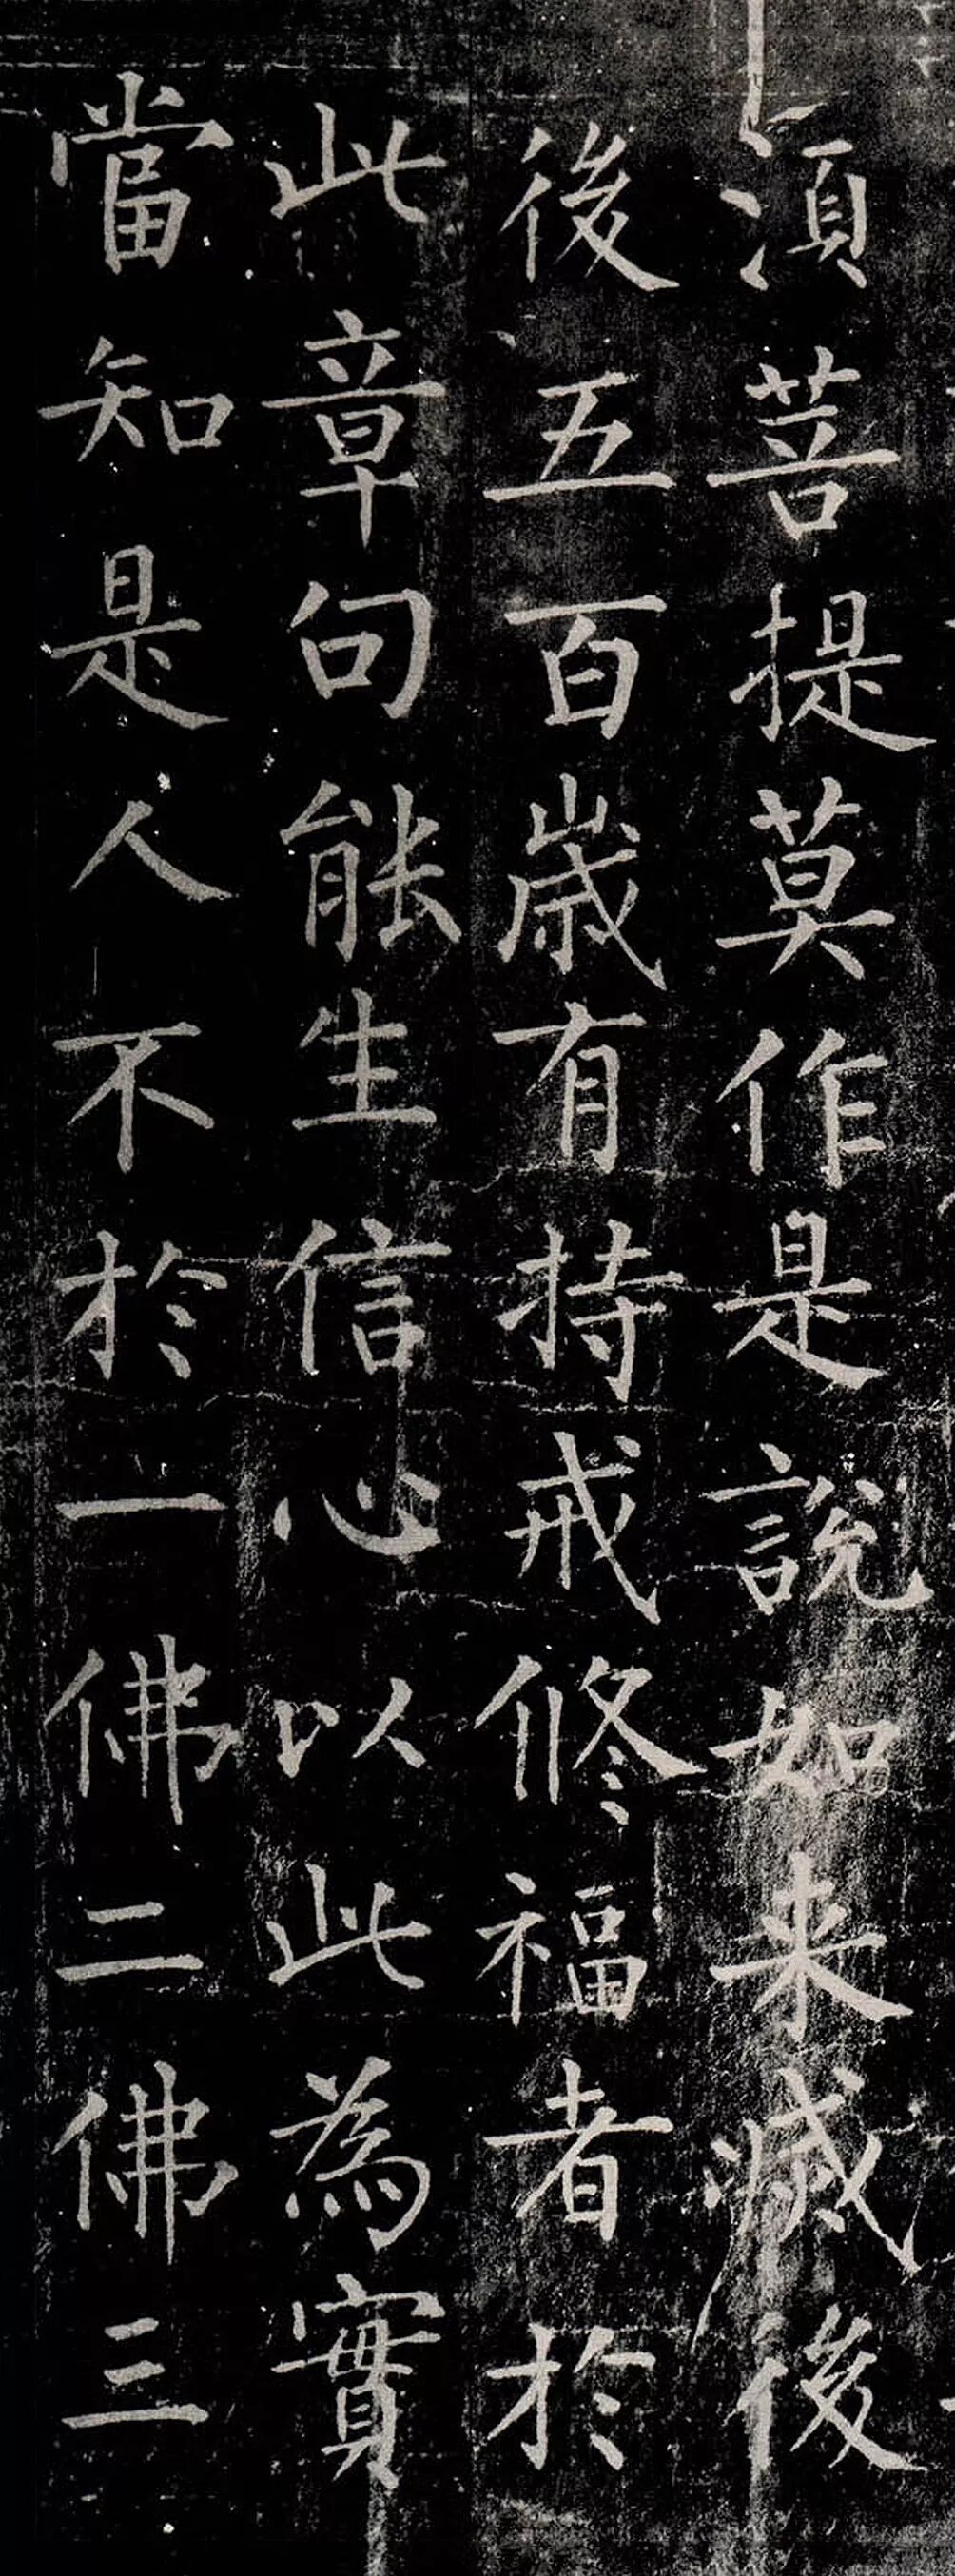 須菩提莫作是說如来滅後
後五百歳有持戒修福者於
此章句能生信心以此為實
當知是人不於一佛二佛三